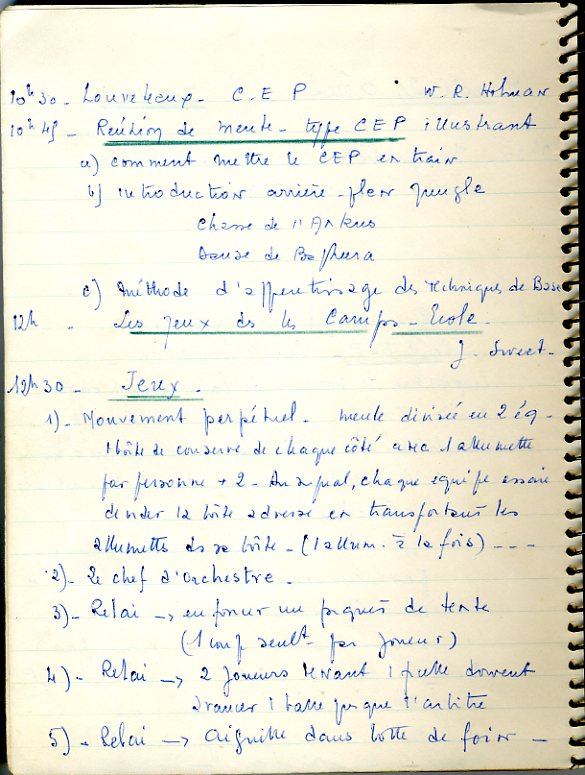 10h30 - Louveteaux - C.E.P W.R. Holman
10h45 - Réunion de meute - type CEP illustrant
a) comment mettre le CEP en train
b) introduction arrière-plan jungle
Chasse de l'Ankus
Danse de Bagheera
c) Méthode d'apprentissage des techniques de Base
12h - Les jeux ds les Camps-Ecole -
J. Sweet -
12h30 - Jeux -
1) - Mouvement perpétuel - meute divisée en 2 éq -
1 boîte de conserve de chaque côté avec 1 allumette
par personne + 2 - Au signal, chaque equipe essaie
de vider la boîte adverse en transportant les
allumettes ds sa boîte - (1 allum. à la fois) - - -
2) - Le chef d'orchestre -
3) - Relai → enfoncer un piquet de tente
(1 coup seult par joueur)
4) - Relai → 2 joueurs tenant 1 doivent
avancer 1 balle jusque l'arbitre
5) - Relai → aiguille dans botte de foin -